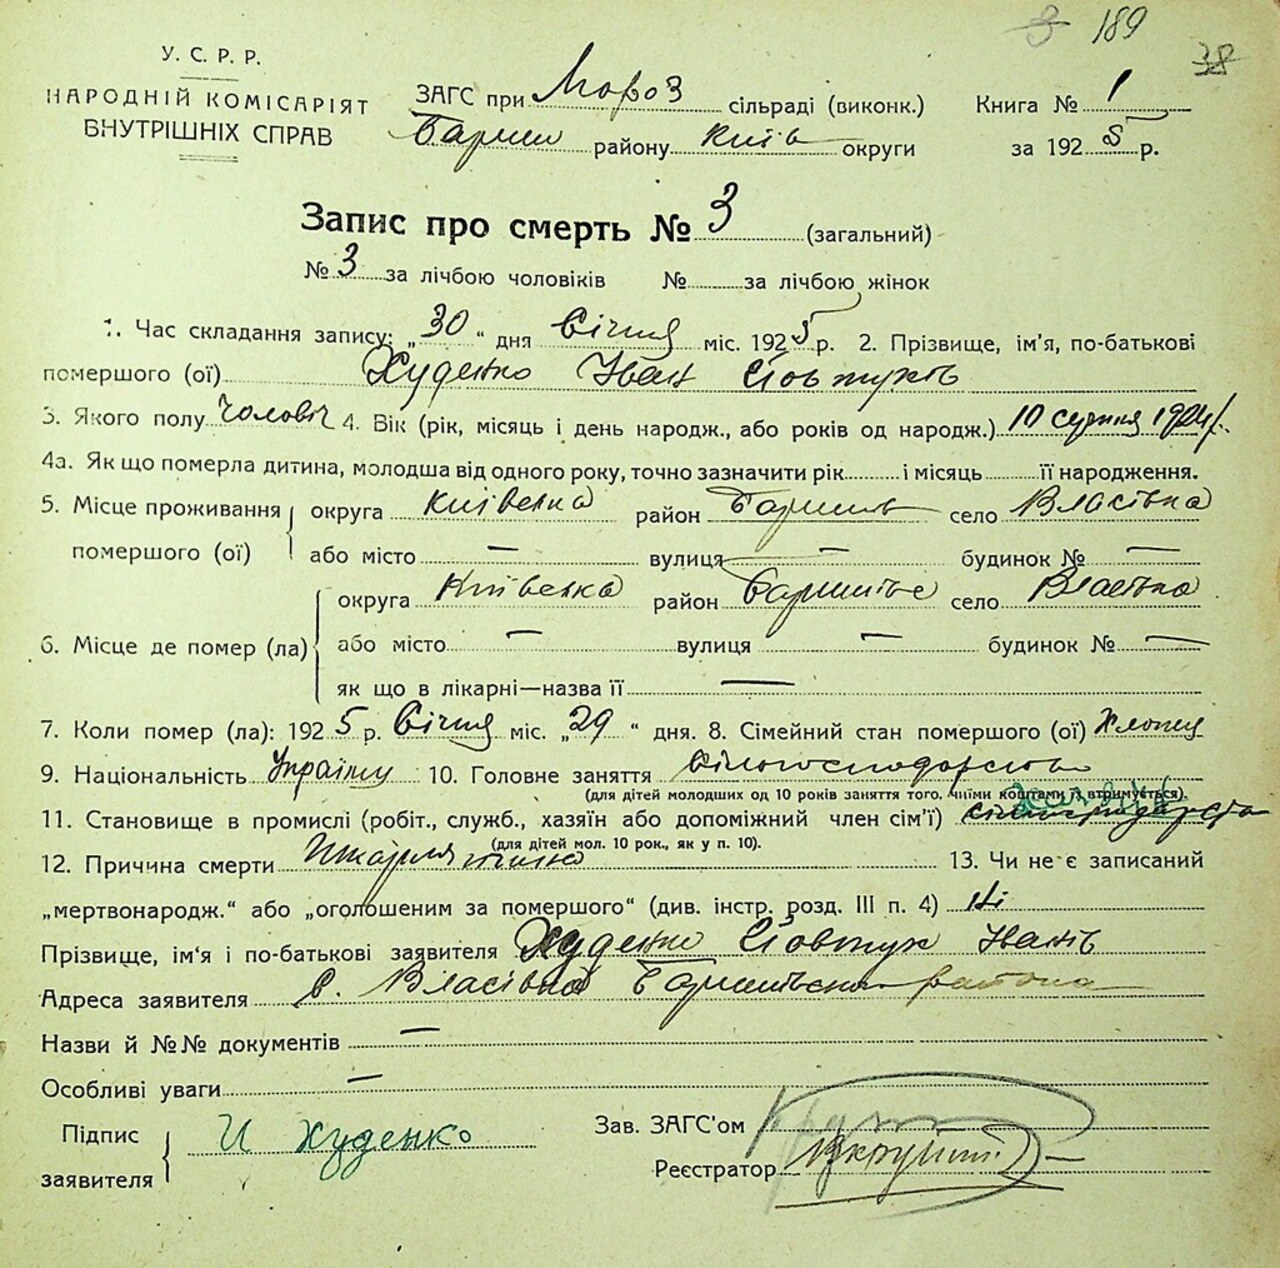 3 189
38
У. С. Р. Р.
НАРОДНІЙ КОМІСАРІЯТ
ВНУТРІШНІХ СПРАВ
ЗАГС при Мороз сільраді (виконк.) Книга № 1
Бариш району Київ округи за 1925 р.
Запис про смерть № 3 (загальний)
№ 3 за лічбою чоловіків № за лічбою жінок
1. Час складання запису: „30“ дня Січня міс. 1925 р. 2. Прізвище, ім'я, по-батькові
помершого (ої) Худенко Іван Йовтухів
3. Якого полу Чоловіч 4. Вік (рік, місяць і день народж., або років од народж.) 10 серпня 1924 р.
4а. Як що померла дитина, молодша від одного року, точно зазначити рік і місяць її народження.
5. Місце проживання помершого (ої) округа Київська район Баришів село Власівка
або місто — вулиця — будинок № —
6. Місце де помер (ла) округа Київська район село Власівка
або місто — вулиця — будинок № —
як що в лікарні—назва її —
7. Коли помер (ла): 1925 р. Січня міс. „29“ дня. 8. Сімейний стан помершого (ої) Хлопец
9. Національність 10. Головне заняття
(для дітей молодших од 10 років заняття того, чиїми коштами з втримується).
11. Становище в промислі (робіт., служб., хазяїн або допоміжний член сім'ї)
(для дітей мол. 10 рок., як у п. 10).
12. Причина смерти 13. Чи не є записаний
„мертвонародж.“ або „оголошеним за помершого“ (див. інстр. розд. III п. 4) Ні
Прізвище, ім'я і по-батькові заявителя Худенко Йовтух Іванів
Адреса заявителя с. Власівка района
Назви й №№ документів —
Особливі уваги —
Підпис заявителя И Худенко
Зав. ЗАГС'ом
Реєстратор